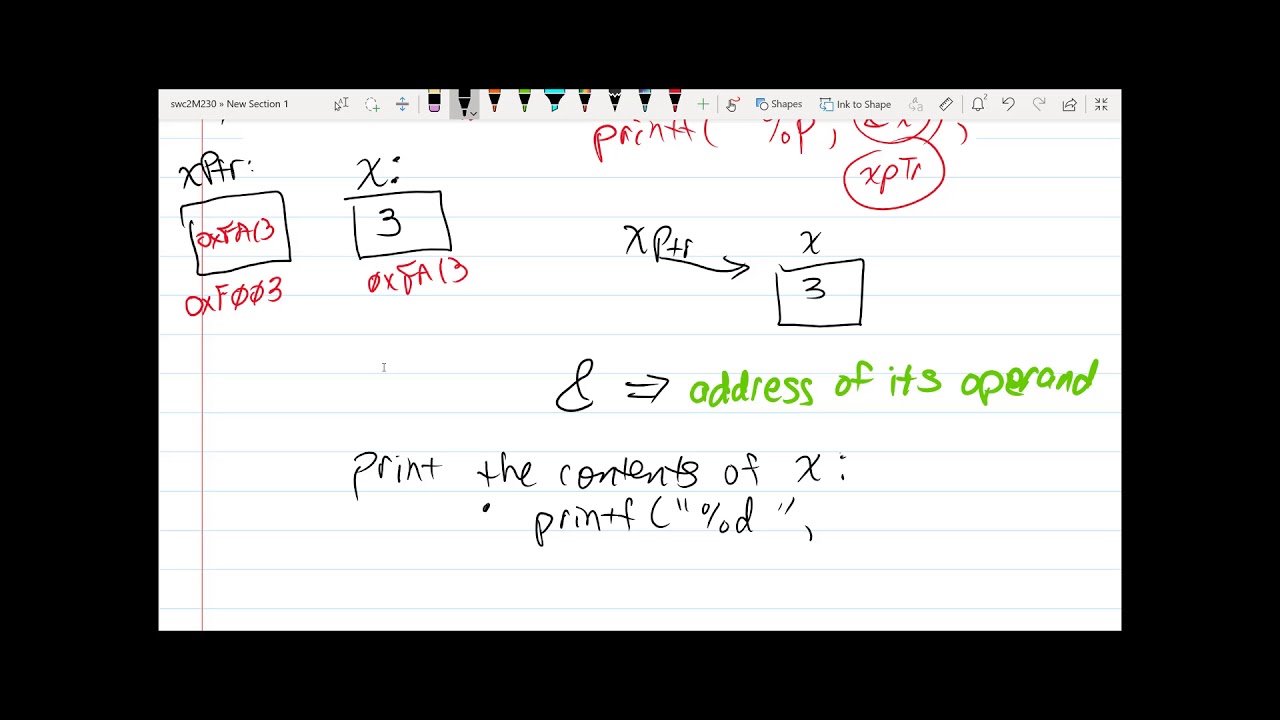 swc2M230 » New Section 1
Shapes
Ink to Shape
2
printf( " %p, &x ,
xpTr
xPtr:
x:
0xFA13
3
0xF003
0xFA13
xPtr
x
3
& ⇒ address of its operand
print the contents of x:
• printf("%d",